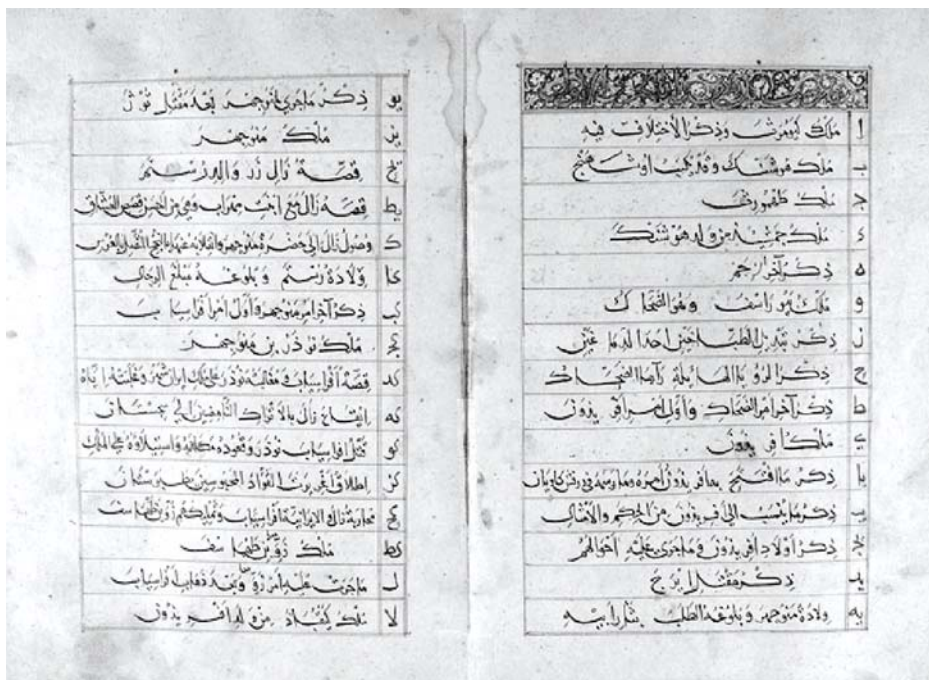 ا ملك كيومرث وذكر الاختلاف فيه
ب ملك هوشنك وقد يكتب اوشهنج
ج ملك طهمورث
د ملك جمشيد من ولد هوشنك
ه ذكر آخر امر جم
و ملك بيوراسف وهو الضحاك
ز ذكر تبديل الطباخين احد الدماغين
ح ذكر الرؤيا الهائلة رآها الضحاك
ط ذكر آخر امر الضحاك واول امر افريدون
ي ملك افريدون
يا ذكر ما افتتح به افريدون امره وما رسمه في درفش كاويان
يب ذكر ما ينسب الى افريدون من الحكم والامثال
يج ذكر اولاد افريدون وما جرى عليه احوالهم
يد ذكر مقتل ايرج
يه ولادة منوجهر وبلوغه الطلب بثار ابيه
يو ذكر ما جرى لمنوجهر بعد مقتل توز
يز ملك منوجهر
يح قصة زال زر والد رستم
يط قصة زال مع ابنت مهراب وهي من احسن قصص العشاق
ك وصول زال الى حضرة منوجهر
كا ولادة رستم وبلوغه مبلغ الرجال
كب ذكر آخر امر منوجهر واول امر افراسياب
كج ملك نوذر بن منوجهر
كد قصة افراسياب في مغالبة نوذر على ملك ايران شهر وغلبته اياه
كه ايقاع زال بالاتراك الناهضين الى سجستان
كو قتل افراسياب نوذر وقعوده مكانه واستيلاؤه على الملك
كز اطلاق اغريرث القواد المحبوسين بطبرستان
كح محاربة زال الايرانية افراسياب وتمليكهم زو بن طهماسف
كط ملك زو بن طهماسف
ل ما جرت عليه امر زو بعد ذهاب افراسياب
لا ملك كيقباذ من ولد افريدون